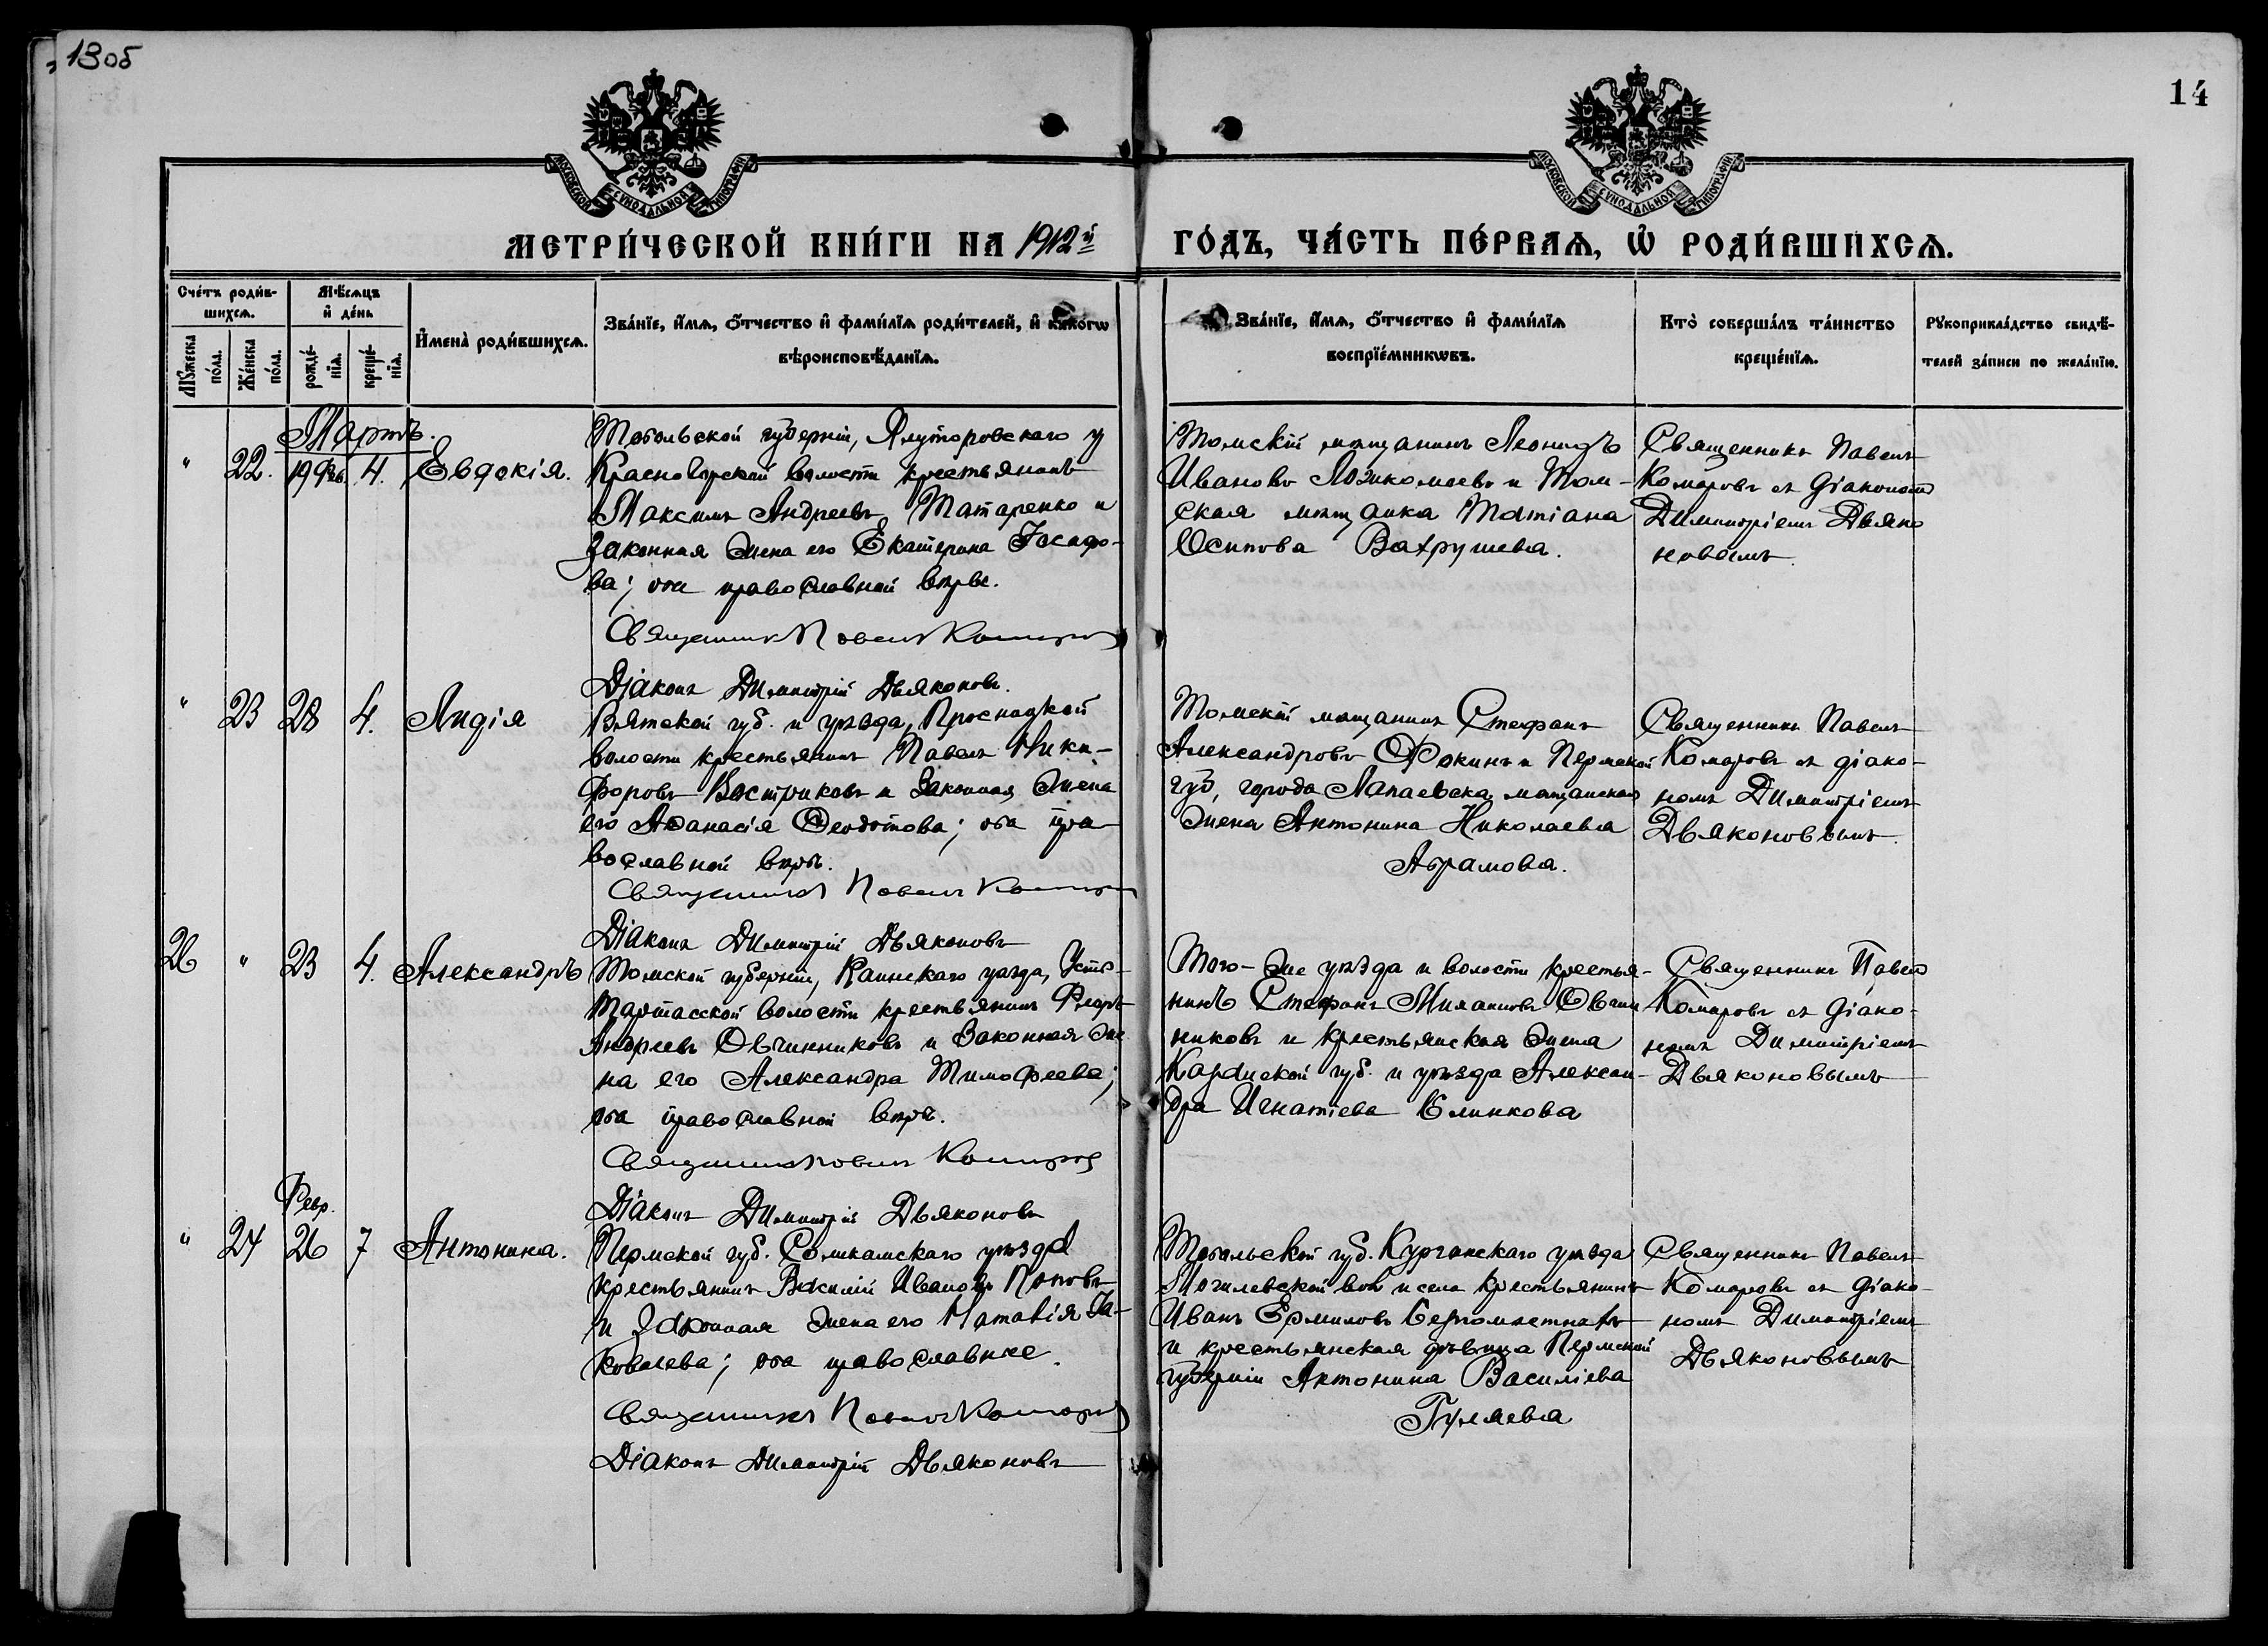 13 об
14
МОСКОВСКОЙ СѴНОДАЛЬНОЙ ТИПОГРАФІИ
МОСКОВСКОЙ СѴНОДАЛЬНОЙ ТИПОГРАФІИ
МЕТРИ́ЧЕСКОЙ КНИ́ГИ НА 1912й ГО́ДЪ, ЧА́СТЬ ПЕ́РВАѦ, Ѡ҆ РОДИ́ВШИХСѦ.
Сче́тъ роди́в-
шихсѧ.
Мꙋ́жеска по́ла.
Же́нска по́ла.
Мѣ́сѧцъ
и҆ де́нь
рожде́-
нїѧ.
креще́-
нїѧ.
И҆мена̀ роди́вшихсѧ.
Зва́нїе, и҆́мѧ, ѻ҆́тчество и҆ фами́лїѧ роди́телей, и҆ како́гѡ
вѣроисповѣ́данїѧ.
Зва́нїе, и҆́мѧ, ѻ҆́тчество и҆ фами́лїѧ
воспрїе́мникѡвъ.
Кто̀ соверша́лъ та́инство
креще́нїѧ.
Рꙋкоприкла́дство свидѣ́-
телей за́писи по жела́нїю.
Мартъ.
" 22. 19 Фев. 4. Евдокія.
Тобольской губерніи, Ялуторовскаго у
Красногорской волости крестьянинъ
Максимъ Андреевъ Татаренко и
законная жена его Екатерина Іосафо-
ва; оба православной вѣры.
Священникъ Павелъ Комаровъ
Діаконъ Димитрій Дьяконовъ.
Томскій мѣщанинъ Леонидъ
Ивановъ и Том-
ская мѣщанка Татіана
Осипова Вахрушева.
Священникъ Павелъ
Комаровъ съ діакономъ
Димитріемъ Дьяко
новымъ.
" 23 28 4. Лидія
Вятской губ. и уѣзда, Просницкой
волости крестьянинъ Павелъ Ники-
форовъ Востриковъ и законная жена
его Аѳанасія Ѳеодотова; оба пра-
вославной вѣры.
Священникъ Павелъ Комаровъ
Діаконъ Димитрій Дьяконовъ
Томскій мѣщанинъ Стефанъ
Александровъ Ѳокинъ и Пермской
губ, города Лапаевска, мѣщанская
жена Антонина Николаева
Абрамова.
Священникъ Павелъ
Комаровъ съ діако-
номъ Димитріемъ
Дьяконовымъ.
26 " 23 4. Александръ
Томской губерніи, Каинскаго уѣзда, Усть-
Тартасской волости крестьянинъ Флоръ
Андреевъ Овчинниковъ и законная же
на его Александра Тимофеева;
оба православной вѣры.
Священникъ Павелъ Комаровъ
Діаконъ Димитрій Дьяконовъ
Того-же уѣзда и волости крестья-
нинъ Стефанъ Овчин
никовъ и крестьянская жена
губ. и уѣзда Алексан-
дра Игнатіева Блинкова
Священникъ Павелъ
Комаровъ съ діако-
номъ Димитріемъ
Дьяконовымъ
Февр.
" 24 26 7 Антонина.
Пермской губ. Соликамскаго уѣзда
крестьянинъ Василій Ивановъ Поповъ
и законная жена его Наталія Іа-
ковлева; оба православные.
Священникъ Павелъ Комаровъ
Діаконъ Димитрій Дьяконовъ
Тобольской губ. Курганскаго уѣзда
Могилевской вол и села крестьянинъ
Иванъ Ермиловъ
и крестьянская дѣвица Пермской
губерніи Антонина Василіева
Гуляева
Священникъ Павелъ
Комаровъ съ діако-
номъ Димитріемъ
Дьяконовымъ